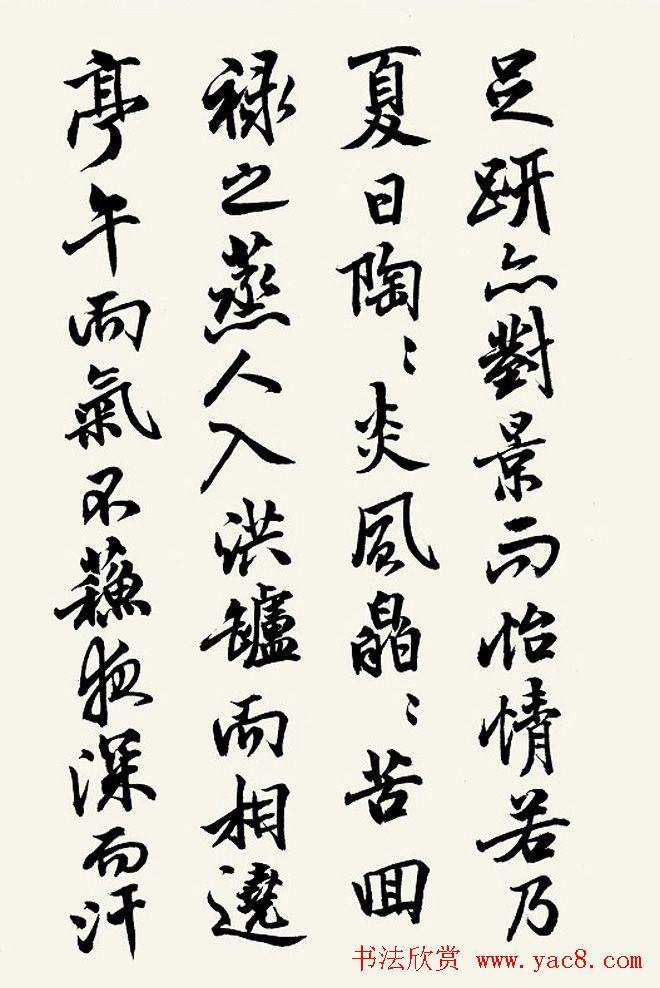 足妍亦對景而怡情若乃
夏日陶〻炎風皛〻苦回
禄之蒸人入洪罏而相遶
亭午而氣不蘓夜深而汗
书法欣赏 www.yac8.com